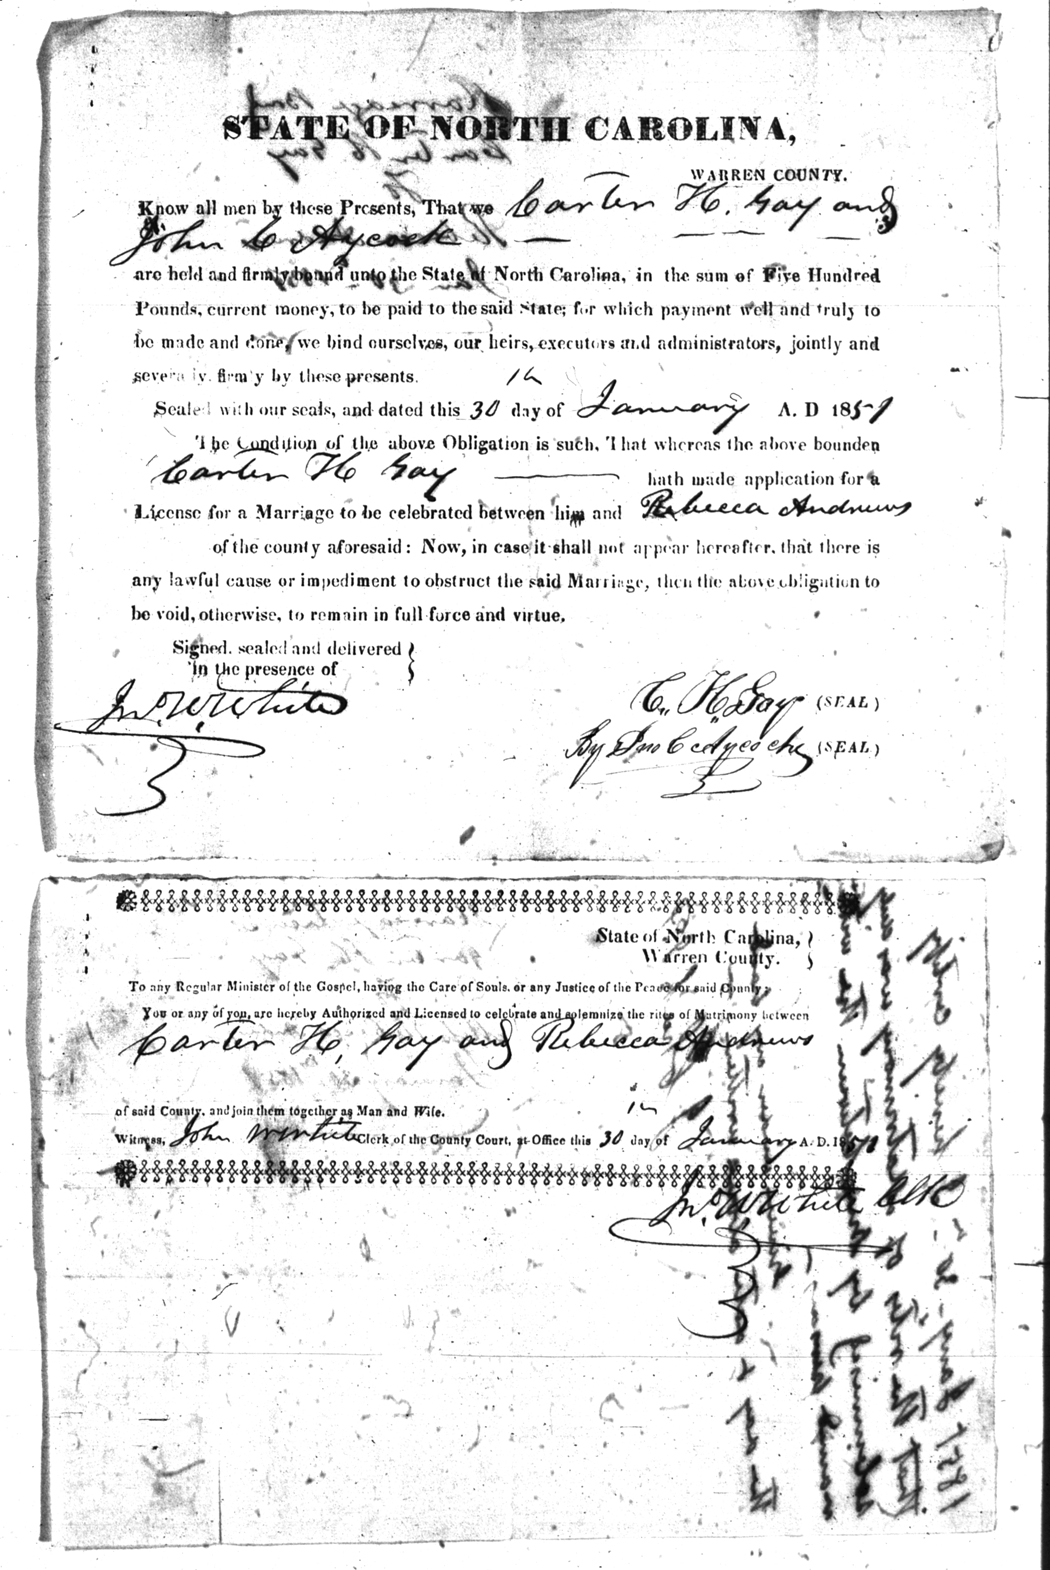 STATE OF NORTH CAROLINA,
WARREN COUNTY.
Know all men by these Presents, That we Carter H. Gay and
John C Aycock
are held and firmly bound unto the State of North Carolina, in the sum of Five Hundred
Pounds, current money, to be paid to the said State; for which payment well and truly to
be made and done, we bind ourselves, our heirs, executors and administrators, jointly and
severally, firmly by these presents.
Sealed with our seals, and dated this 30th day of January A. D 1851
The Condition of the above Obligation is such, That whereas the above bounden
Carter H Gay hath made application for a
License for a Marriage to be celebrated between him and Rebecca Andrews
of the county aforesaid: Now, in case it shall not appear hereafter, that there is
any lawful cause or impediment to obstruct the said Marriage, then the above obligation to
be void, otherwise, to remain in full force and virtue.
Signed, sealed and delivered
in the presence of
Jno. W. White
C. H. Gay (SEAL)
By Jno C Aycock (SEAL)
State of North Carolina,
Warren County.
To any Regular Minister of the Gospel, having the Care of Souls, or any Justice of the Peace for said County:
You or any of you, are hereby Authorized and Licensed to celebrate and solemnize the rites of Matrimony between
Carter H, Gay and Rebecca Andrews
of said County, and join them together as Man and Wife.
Witness, John W White Clerk of the County Court, at Office this 30th day of January A. D. 1851
Jno. W White Clk